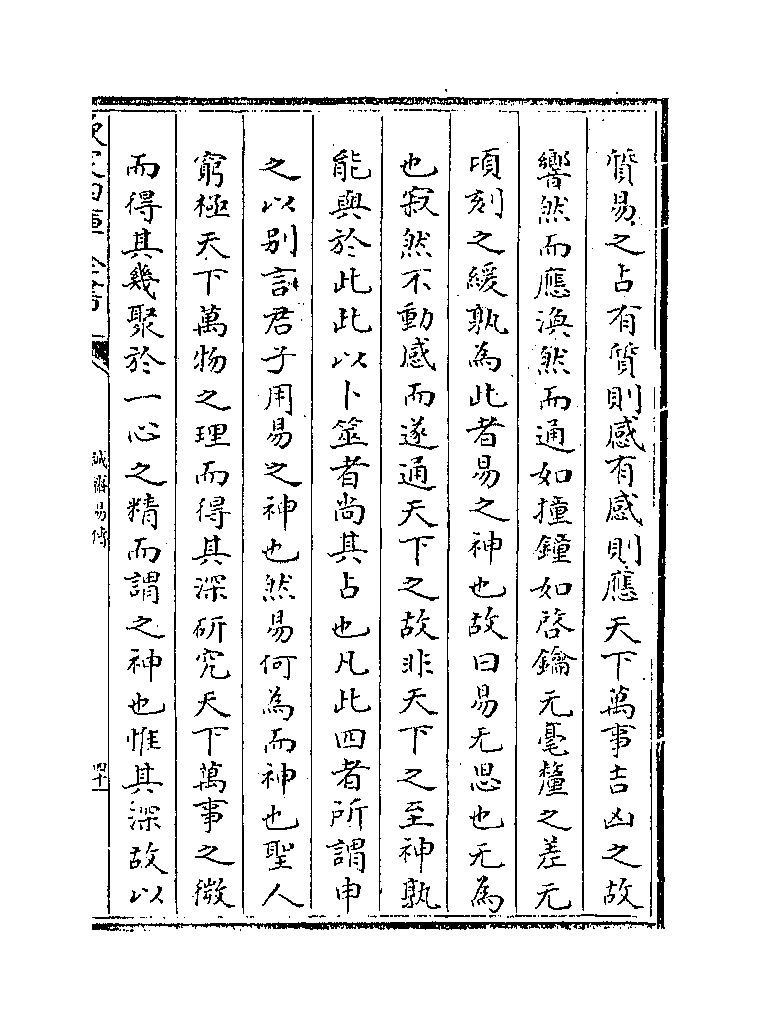 質易之占有質則感有感則應天下萬事吉凶之故
響然而應渙然而通如撞鐘如啓鑰无毫釐之差元
頃刻之緩孰為此者易之神也故曰易无思也无為
也寂然不動感而遂通天下之故非天下之至神孰
能與於此此以卜筮者尚其占也凡此四者所謂申
之以别言君子用易之神也然易何為而神也聖人
窮極天下萬物之理而得其深研究天下萬事之微
而得其幾聚於一心之精而謂之神也惟其深故以
欽定四庫全書
誠齋易傳
四十